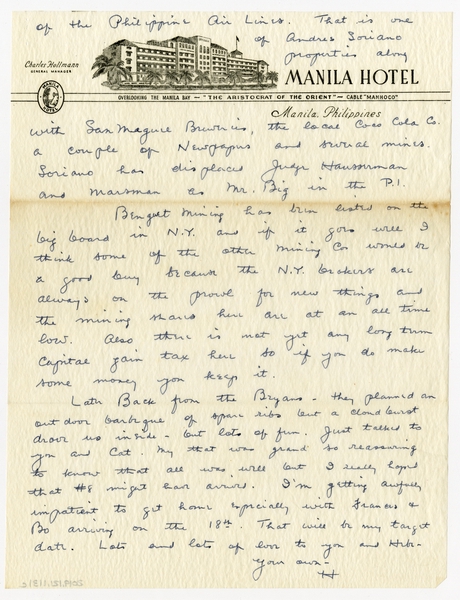 of the Philippine Air Lines. That is one
of Andres Soriano
properties along
Charles Hollmann
GENERAL MANAGER
MANILA HOTEL
MANILA HOTEL
OVERLOOKING THE MANILA BAY — "THE ARISTOCRAT OF THE ORIENT" — CABLE "MANHOCO"
Manila, Philippines
with San Maguie Breweries, the local Coco Cola Co.
a couple of Newspapers and several mines.
Soriano has displaced Judge Hausserman
and Marsman as Mr. Big in the P.I.
Benguet Mining has been listed on the
big board in N.Y. and if it goes well I
think some of the other Mining Co would be
a good buy because the N.Y. brokers are
always on the prowl for new things and
the mining shares here are at an all time
low. Also there is not yet any long term
Capital gain tax here so if you do make
some money you keep it.
Later Back from the Bryans - they planned an
out door barbeque of spare ribs but a cloud burst
drove us inside - but lots of fun. Just talked to
you and Cat. My that was grand so reassuring
to know that all was well but I really hoped
that #8 might have arrived. I'm getting awfully
impatient to get home especially with Frances &
Bo arriving on the 18th. That will be my target
date. Lots and lots of love to you and
Your own -
H